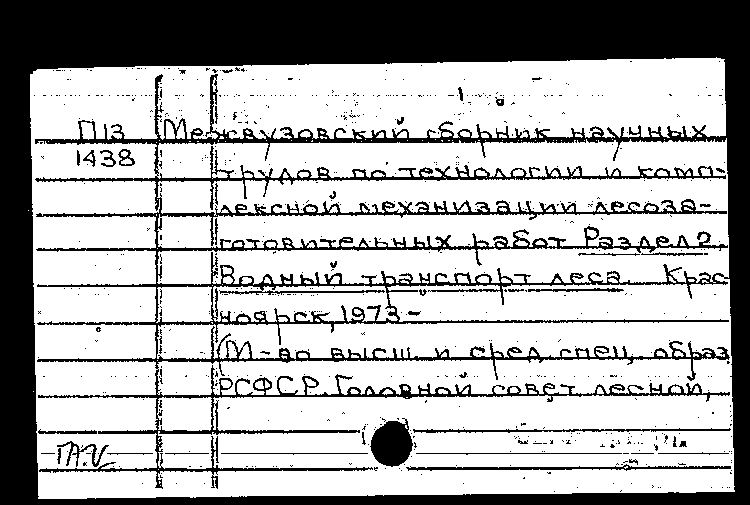 П13 Межвузовский сборник научных
1438
трудов по технологии и комп-
лексной механизации лесоза-
готовительных работ Раздел 2.
Водный транспорт леса. Крас
ноярск, 1973-
(М-во высш. и сред. спец. образ
РСФСР. Головной совет лесной,